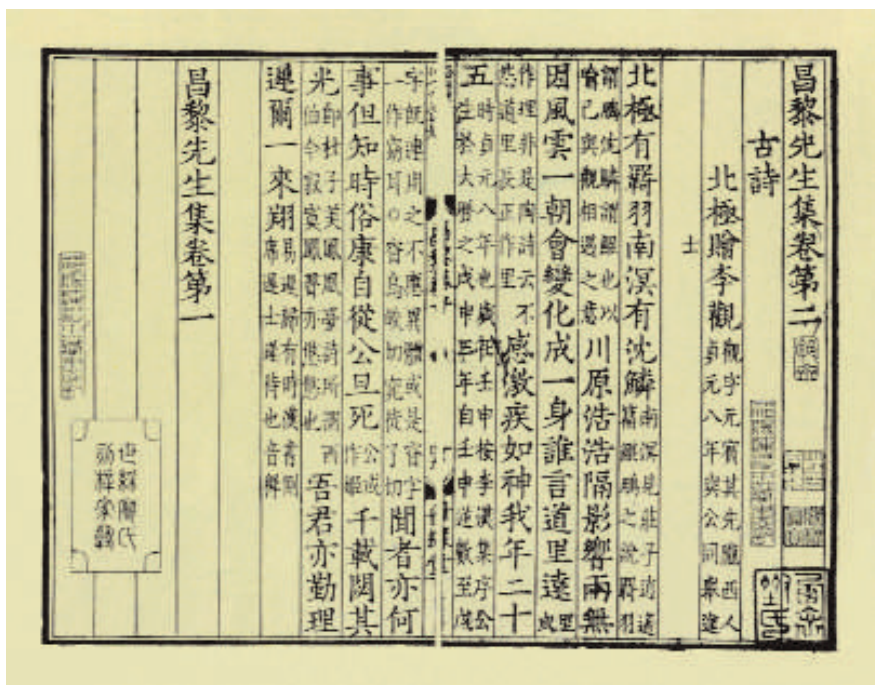 昌黎先生集卷第二
古詩
北極贈李觀觀字元賓其先隴西人貞元八年與公同舉進
士
北極有羇羽南溟有沈鱗南溟見莊子逍遙篇鯤鵬之說羇羽
謂鵬沈鱗謂鯤也以喻己與觀相遇之意川原浩浩隔影響兩無
因風雲一朝會變化成一身誰言道里遠里或
作理非是陶詩云不然道里長正作里感激疾如神我年二十
五時貞元八年也歲在壬申按李漢集序公生於大曆之戊申年自壬申逆數至戊
字既連用之不應異體或是窅字一作窈耳○窅烏皎切窕徒了切聞者亦何
事但知時俗康自從公旦死公或作姬千載閟其
光即杜子美鳳凰夢詩所謂西伯今寂寞鳳聲亦悠悠也吾君亦勤理
遲爾一來翔易遲歸有時漢書側席遲士遲待也音稺
昌黎先生集卷第一